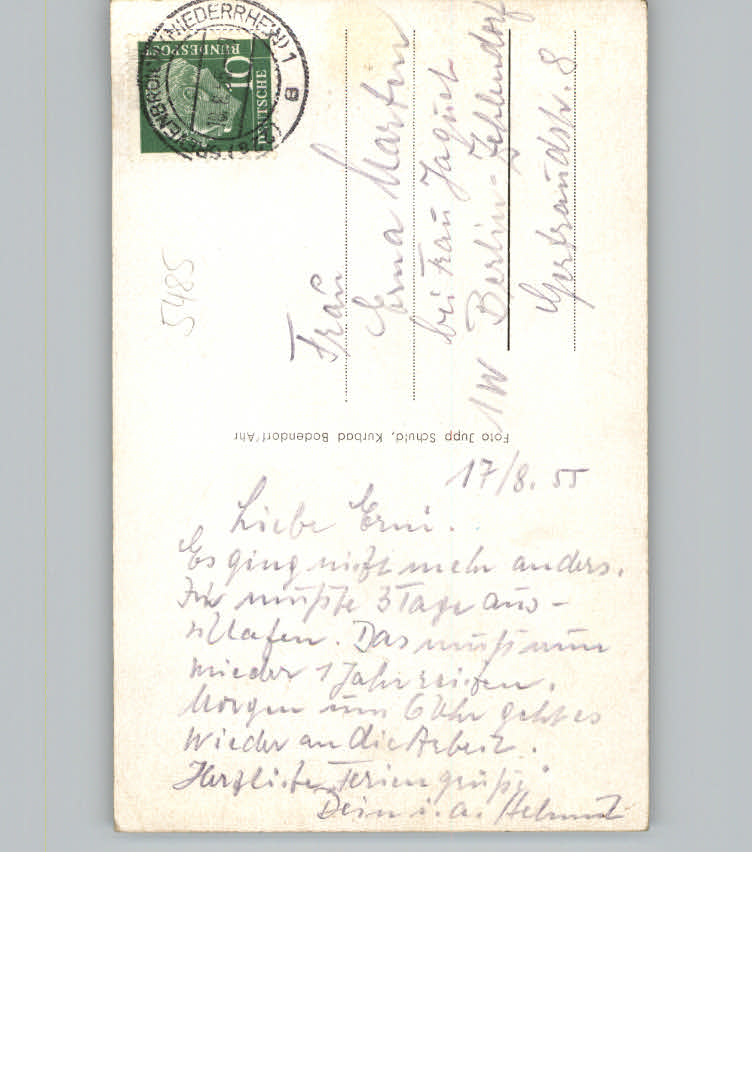 (22a) GREVENBROICH (NIEDERRHEIN) 1
B
DEUTSCHE
BUNDESPOST
10
5485
Frau
Erna Marten
bei Frau Jaquet
1 W Berlin-Zehlendorf
Gertraudstr. 8
Foto Jupp Schuld, Kurbad Bodendorf/Ahr
17/8. 55
Liebe Erni.
Es ging nicht mehr anders.
Ich mußte 3 Tage aus-
schlafen. Das muß nun
wieder 1 Jahr reichen.
Morgen um 6 Uhr geht es
wieder an die Arbeit.
Herzliche Feriengrüße
Dein i. a. Helmut